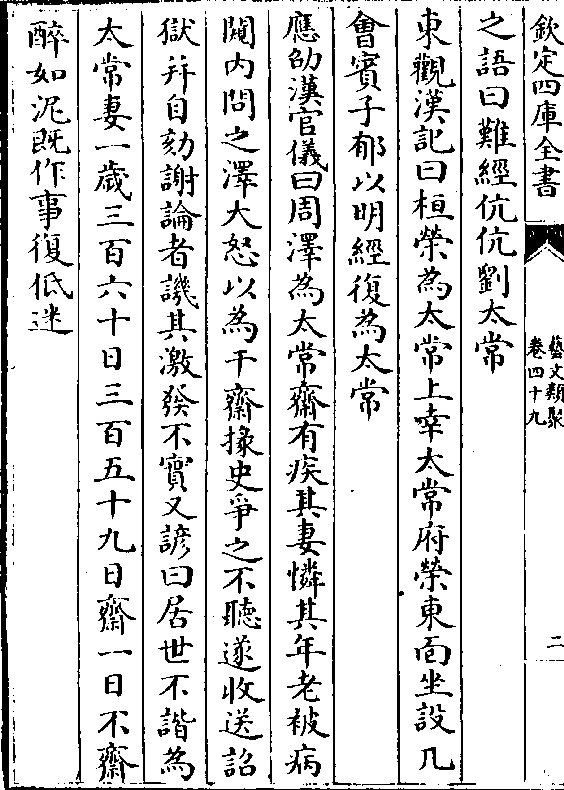 欽定四庫全書
藝文類聚
卷四十九
二
之語曰難經伉伉劉太常
東觀漢記曰桓榮為太常上幸太常府榮東面坐設几
會賓子郁以明經復為太常
應劭漢官儀曰周澤為太常齋有疾其妻憐其年老被病
闚内問之澤大怒以為干齋掾史爭之不聽遂收送詔
獄并自劾謝論者譏其激發不實又諺曰居世不諧為
太常妻一歲三百六十日三百五十九日齋一日不齋
醉如泥既作事復低迷